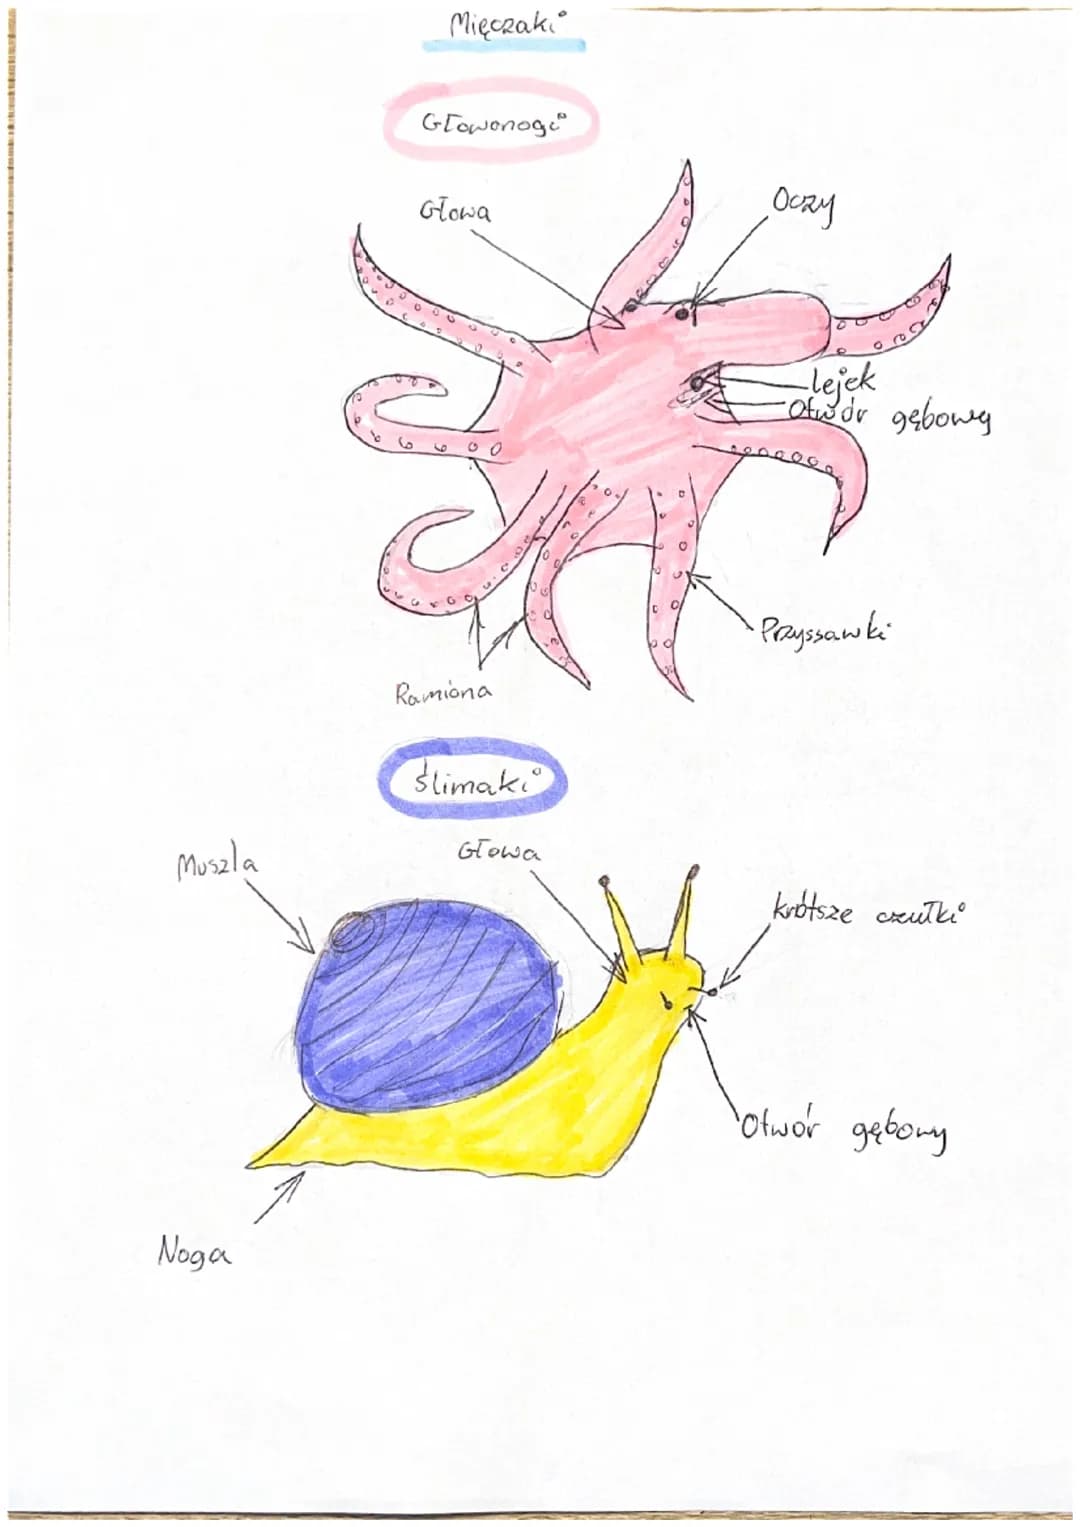 Mięczaki
Głowonogi
Głowa
Oczy
lejek
Otwór gębowy
Przyssawki
Ramiona
Ślimaki
Muszla
Głowa
krótsze czułki
Otwór gębowy
Noga